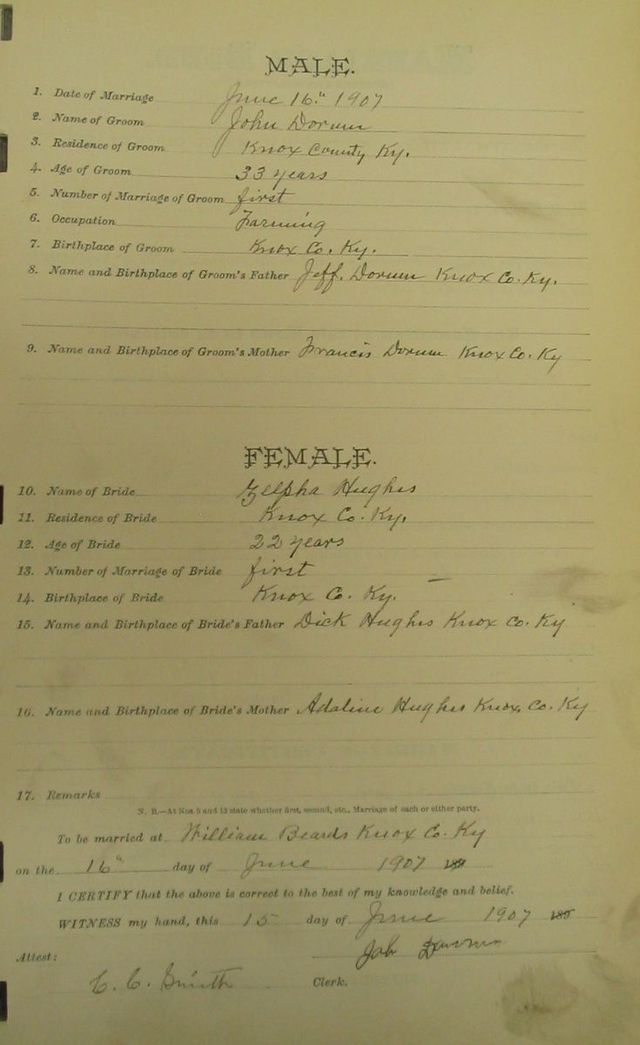 MALE.
1. Date of Marriage June 16" 1907
2. Name of Groom John Dorum
3. Residence of Groom Knox County Ky.
4. Age of Groom 33 years
5. Number of Marriage of Groom first
6. Occupation Farming
7. Birthplace of Groom Knox Co. Ky.
8. Name and Birthplace of Groom's Father Jeff. Dorum Knox Co. Ky.
9. Name and Birthplace of Groom's Mother Francis Dorum Knox Co. Ky
FEMALE.
10. Name of Bride Zelpha Hughs
11. Residence of Bride Knox Co. Ky.
12. Age of Bride 22 years
13. Number of Marriage of Bride first
14. Birthplace of Bride Knox Co. Ky.
15. Name and Birthplace of Bride's Father Dick Hughs Knox Co. Ky
16. Name and Birthplace of Bride's Mother Adaline Hughs Knox Co. Ky
17. Remarks
N. B.—At Nos. 5 and 13 state whether first, second, etc., Marriage of each or either party.
To be married at William Beards Knox Co. Ky
on the 16" day of June 1907
I CERTIFY that the above is correct to the best of my knowledge and belief.
WITNESS my hand, this 15 day of June 1907 189
Attest:
C. C. Smith Clerk.